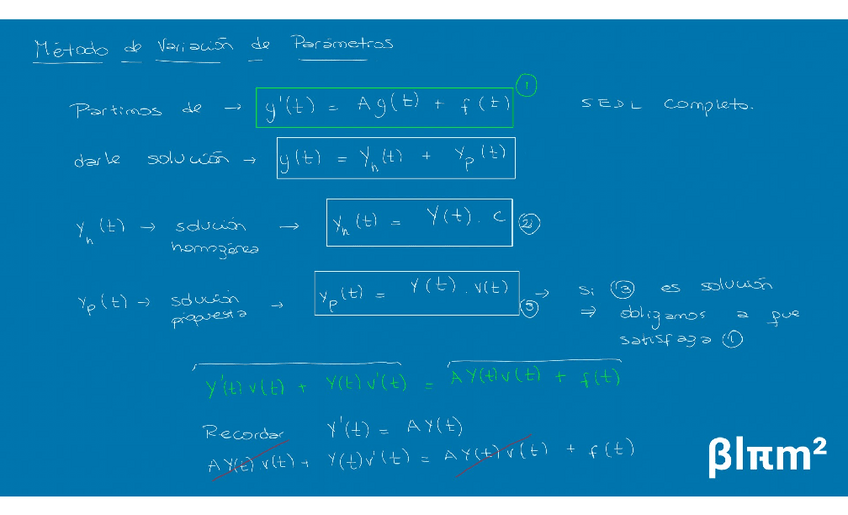 Método de Variación de Parámetros
Partimos de → y'(t) = Ay(t) + f(t) ① SEDL completo.
darle solución → y(t) = Yₕ(t) + Yₚ(t)
Yₕ(t) → solución homogénea → Yₕ(t) = Y(t) · C ②
Yₚ(t) → solución propuesta → Yₚ(t) = Y(t) · v(t) ③ → si ③ es solución
⇒ obligamos a que
satisfaga ①
Y'(t)v(t) + Y(t)v'(t) = AY(t)v(t) + f(t)
Recordar Y'(t) = AY(t)
AY(t)v(t) + Y(t)v'(t) = AY(t)v(t) + f(t)
βlπm²